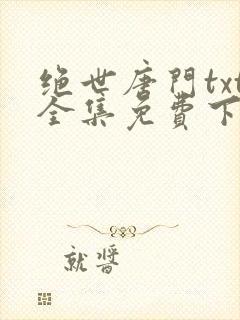 绝世唐門txt
全集免費下
就醬